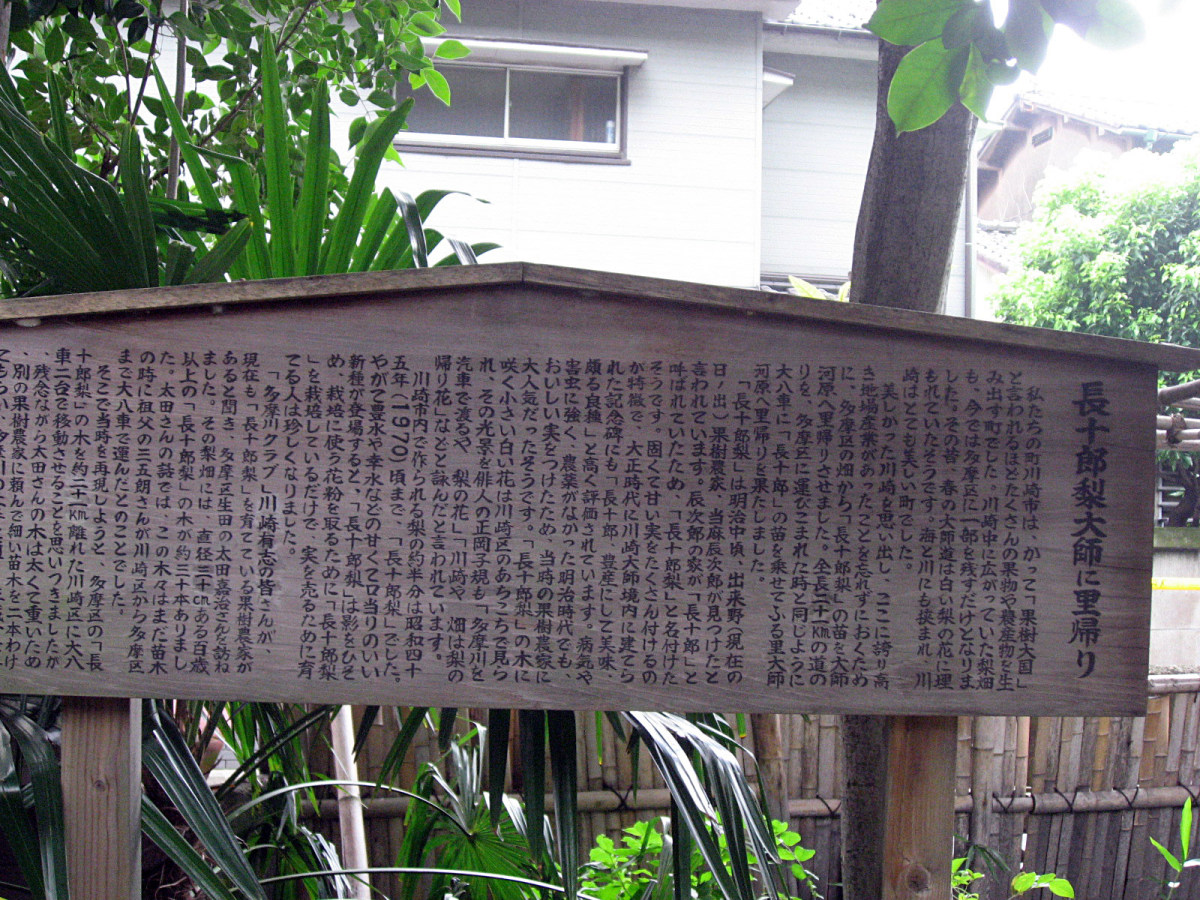 長十郎梨大師に里帰り
私たちの町川崎市は、かつて「果樹大国」
と言われるほどたくさんの果物や農産物を生
み出す町でした。川崎中に広がっていた梨畑
は、今では多摩区に一部を残すだけとなりま
した。その昔、春の大師道は白い梨の花に埋
もれていたそうです。海と川にも挟まれ、川
崎はとても美しい町でした。
美しかった川崎を思い出し、ここに誇り高
き地場産業があったことを忘れずにおくため
に、多摩区の畑から「長十郎梨」の苗を大師
河原へ里帰りさせました。全長二十一kmの道の
りを、多摩区に運びこまれた時と同じように
大八車に「長十郎」の苗を乗せてふる里大師
河原へ里帰りを果たしました。
「長十郎梨」は明治中頃、出来野（現在の
日ノ出）果樹農家、当麻辰次郎が見つけたと
言われています。辰次郎の家が「長十郎」と
呼ばれていたため、「長十郎梨」と名付けた
そうです。固くて甘い実をたくさん付けるの
が特徴で、大正時代に川崎大師境内に建てら
れた記念碑にも「長十郎、豊産にして美味、
頗る良種」と高く評価されています。病気や
害虫に強く、農薬がなかった明治時代でも、
おいしい実をつけたため、当時の果樹農家に
大人気だったそうです。「長十郎梨」の木に
咲く小さい白い花は川崎区のあちこちで見ら
れ、その光景を俳人の正岡子規も「多摩川を
汽車で渡るや 梨の花」「川崎や 畑は梨の
帰り花」などと詠んだと言われています。
川崎市内で作られる梨の約半分は昭和四十
五年（1970）頃まで、「長十郎梨」でした。
やがて豊水や幸水などの甘くて口当りのいい
新種が登場すると、「長十郎梨」は影をひそ
め、栽培に使う花粉を取るために「長十郎梨
」を栽培しているだけで、実を売るために育
てる人は珍しくなりました。
「多摩川クラブ」川崎有志の皆さんが、
現在も「長十郎梨」を育てている果樹農家が
あると聞き、多摩区生田の太田嘉治さんを訪ね
ました。その梨畑には、直径三十cmある百歳
以上の「長十郎梨」の木が約三十本ありまし
た。太田さんの話では、この木々はまだ苗木
の時に祖父の三五朗さんが川崎区から多摩区
まで大八車で運んだとのことでした。
そこで当時を再現しようと、多摩区の「長
十郎梨」の木を約二十一km離れた川崎区に大八
車二台で移動させることを思いつきましたが
、残念ながら太田さんの木は太くて重いため
、別の果樹農家に頼んで細い苗木を二本わけ
てもらい、多摩川の